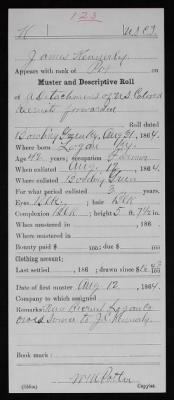 123
K U.S.C.T.
James Kennerly
Appears with rank of Pvt on
Muster and Descriptive Roll
of a Detachment of U.S. Colored
recruits forwarded
Roll dated
Bowling Green Ky, Aug 31, 1864.
Where born Logan Ky.
Age 42 years; occupation Farmer
When enlisted Aug. 12, 1864.
Where enlisted Bowling Green
For what period enlisted 3 years.
Eyes Blk.; hair Blk
Complexion Blk; height 5 ft. 7½ in.
When mustered in , 186 .
Where mustered in
Bounty paid $ 100; due $ 100
Clothing account:
Last settled , 186 ; drawn since $ 100
Date of first muster Aug 12, 1864
Company to which assigned
Remarks:
Book mark:
W R Potter
Copyist.